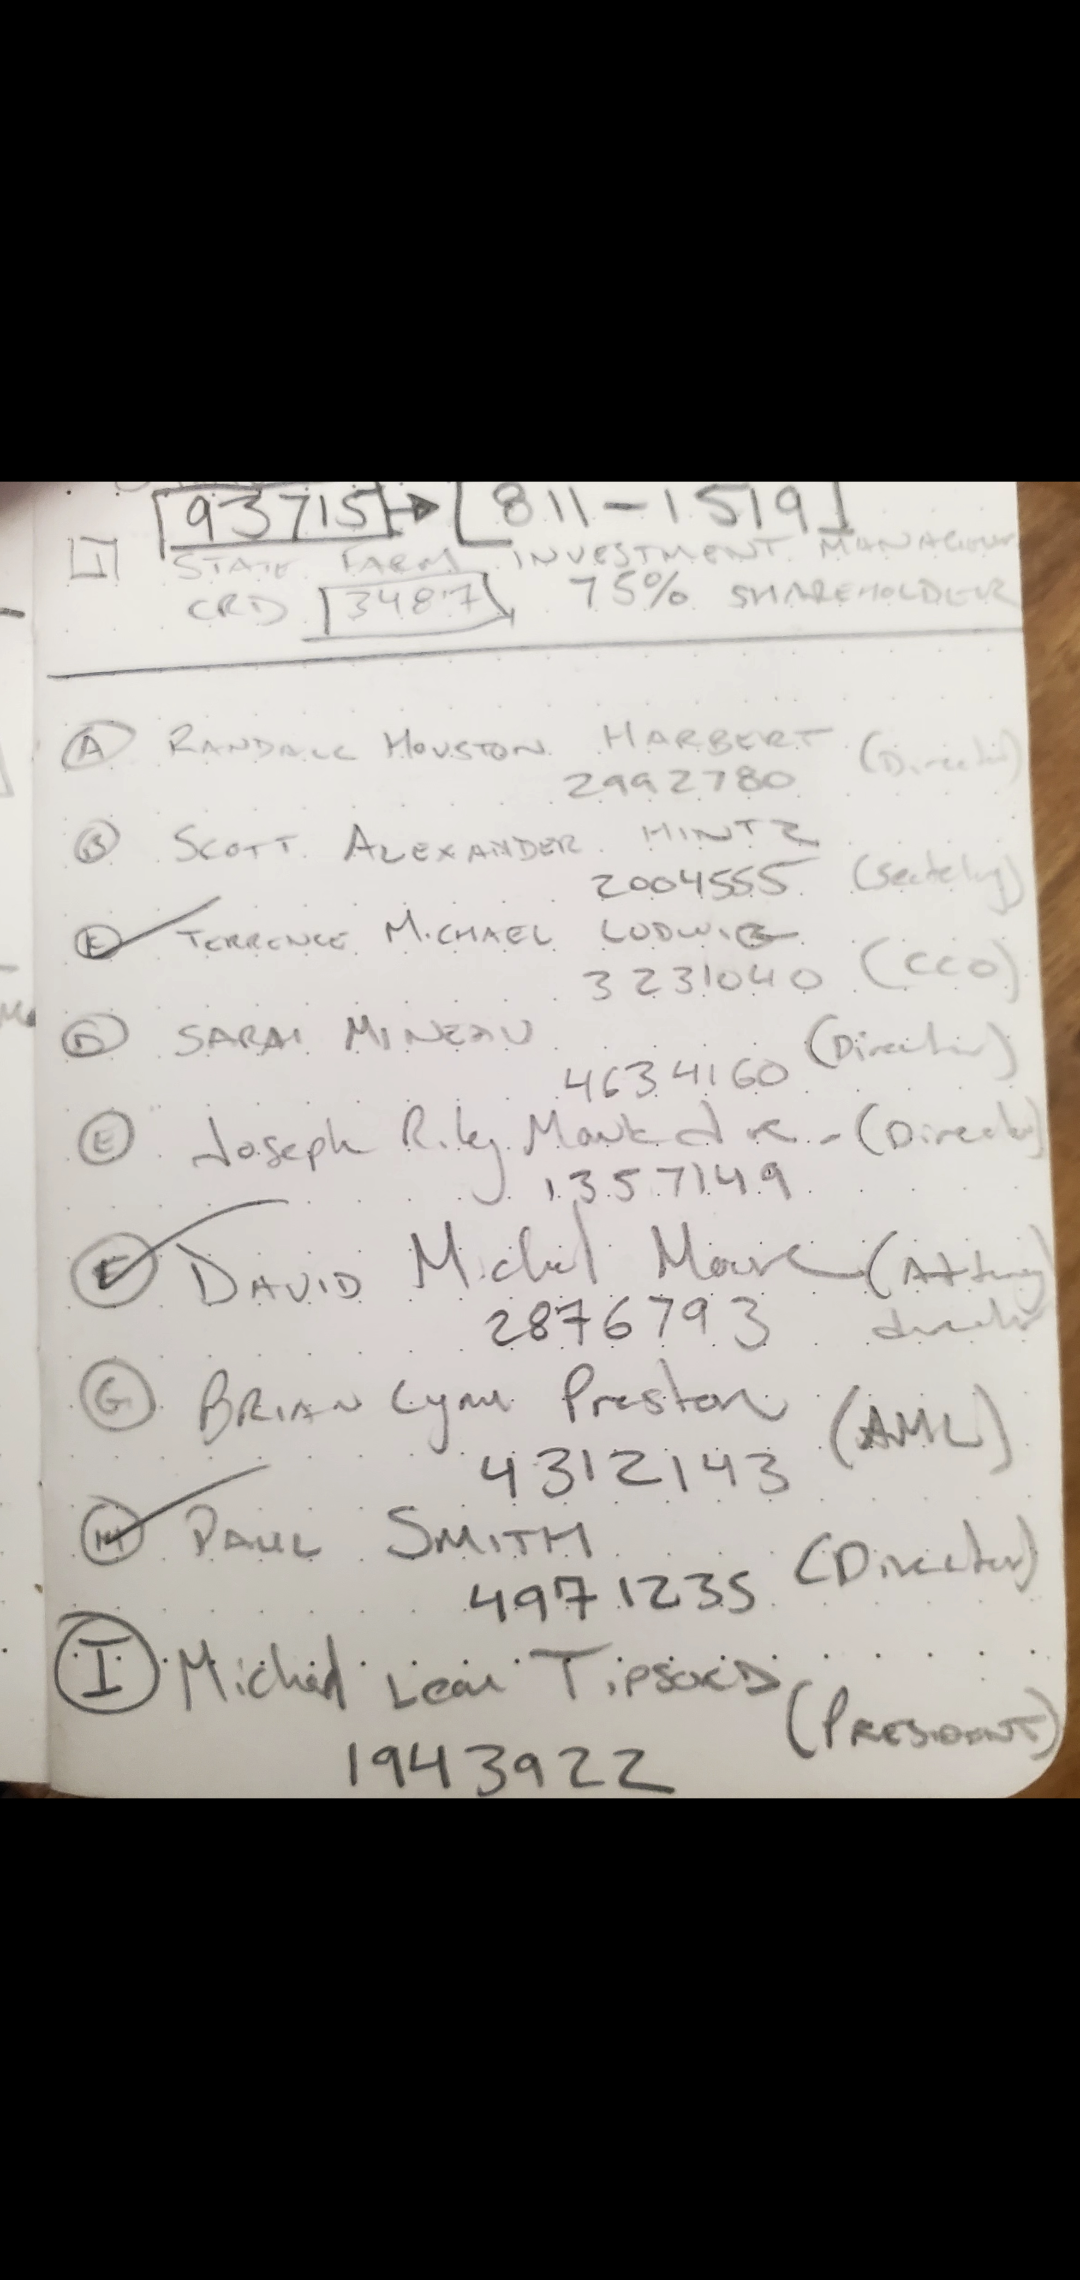 93715 → [811-1519]
STATE FARM INVESTMENT MANAGEM
CRD 3487 75% SHAREHOLDER
A RANDALL HOUSTON HARBERT (Director)
2992780
B SCOTT ALEXANDER HINTZ
2004555
TERRENCE MICHAEL LUDWIG
3231040 (CCO)
D SARAI MINEAU (Director)
4634160
E Joseph Riley Monk Jr - (Director)
1357149
F DAVID Michael Moore (Attorney
2876793 director
G BRIAN Lynn Preston (AML)
4312143
H PAUL SMITH (Director)
4971235
I Michael Leon TIPSORD (PRESIDENT)
1943922